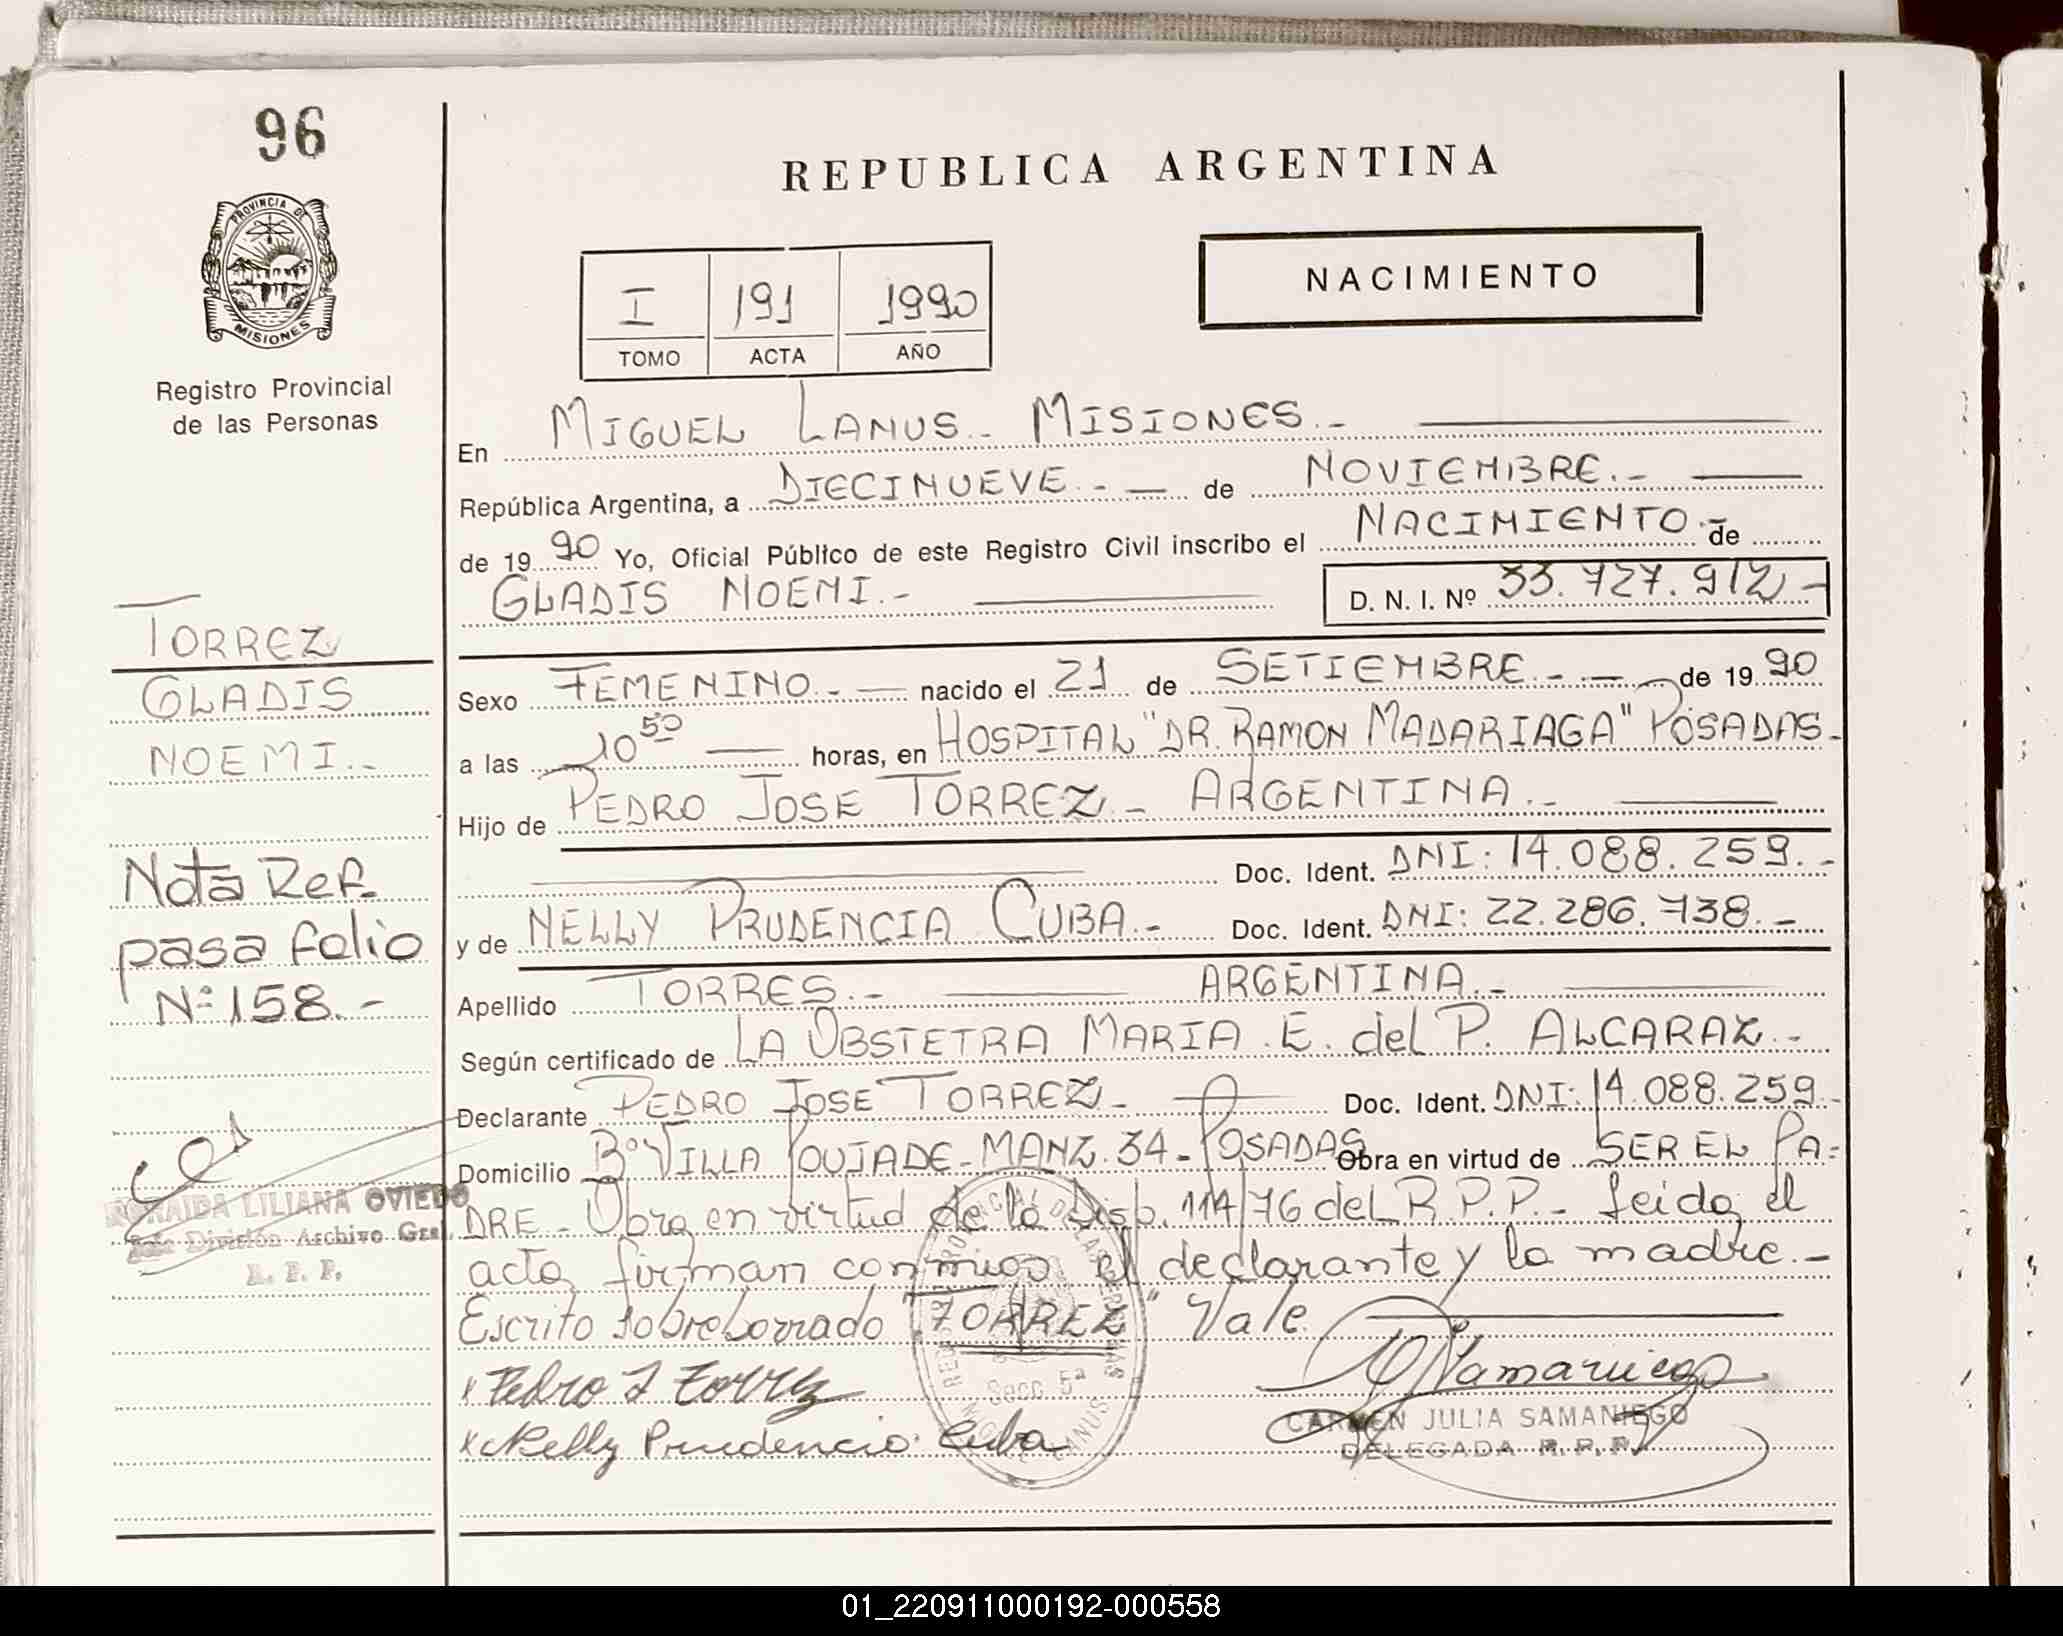 96
PROVINCIA DE
MISIONES
Registro Provincial
de las Personas
REPUBLICA ARGENTINA
I 191 1990
TOMO ACTA AÑO
NACIMIENTO
En MIGUEL LANUS - MISIONES.-
República Argentina, a DIECINUEVE.- de NOVIEMBRE.-
de 1990 Yo, Oficial Público de este Registro Civil inscribo el NACIMIENTO.- de
GLADIS NOEMI.- D. N. I. Nº 33.727.912-
TORREZ
GLADIS
NOEMI.-
Sexo FEMENINO.- nacido el 21 de SETIEMBRE.- de 1990
a las 10 50 horas, en HOSPITAL "DR. RAMON MADARIAGA" POSADAS-
Hijo de PEDRO JOSE TORREZ - ARGENTINA.-
Doc. Ident. DNI: 14.088.259.-
y de NELLY PRUDENCIA CUBA.- Doc. Ident. DNI: 22.286.738.-
Apellido TORRES.- ARGENTINA.-
Según certificado de LA OBSTETRA MARIA E. del P. ALCARAZ.-
Declarante PEDRO JOSE TORREZ - Doc. Ident. DNI: 14.088.259.-
Domicilio Bº VILLA POUJADE - MANZ. 34 - POSADAS Obra en virtud de SER EL PA-
DRE - Obra en virtud de la Disp. 114/76 del R.P.P. - Leida el
acta, firman conmigo el declarante y la madre.-
Escrito sobreborrado "TORREZ" Vale.
x Pedro J Torrez
x Nelly Prudencia Cuba
Nota Ref.
pasa folio
Nº 158.-
LILIANA OVIEDO
Jefe División Archivo Gral.
R. P. P.
Secc. 5ª
CARMEN JULIA SAMANIEGO
DELEGADA R. P. P.
01_220911000192-000558